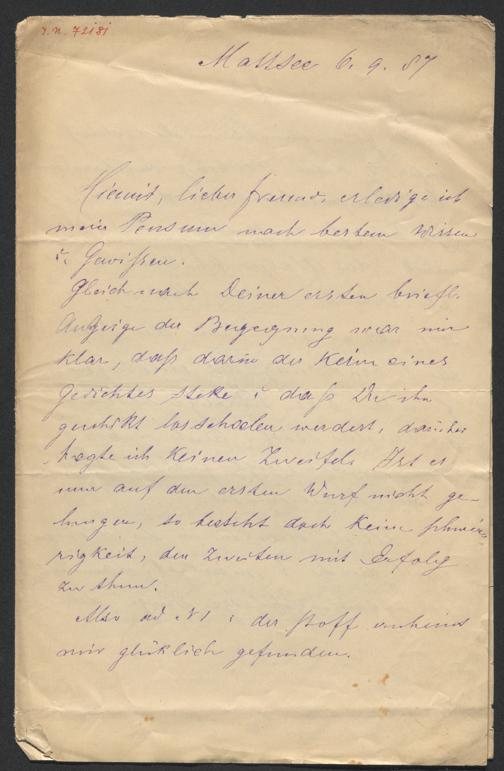 I.N. 72181
Mattsee 6. 9. 87
Hiemit, lieber Freund, erledige ich
mein Pensum nach bestem Wissen
u. Gewißen.
Gleich nach Deiner ersten briefl.
Anzeige der Begegnung war mir
klar, daß darin der Keim eines
Gedichtes steke u daß Du ihn
geschikt losschälen werdest, darüber
hegte ich keinen Zweifel. Ist es
nun auf den ersten Wurf nicht ge-
lungen, so besteht doch keine schwie-
rigkeit, den zweiten mit Erfolg
zu thun.
Also ad N 1 : der stoff scheint
mir glüklich gefunden.